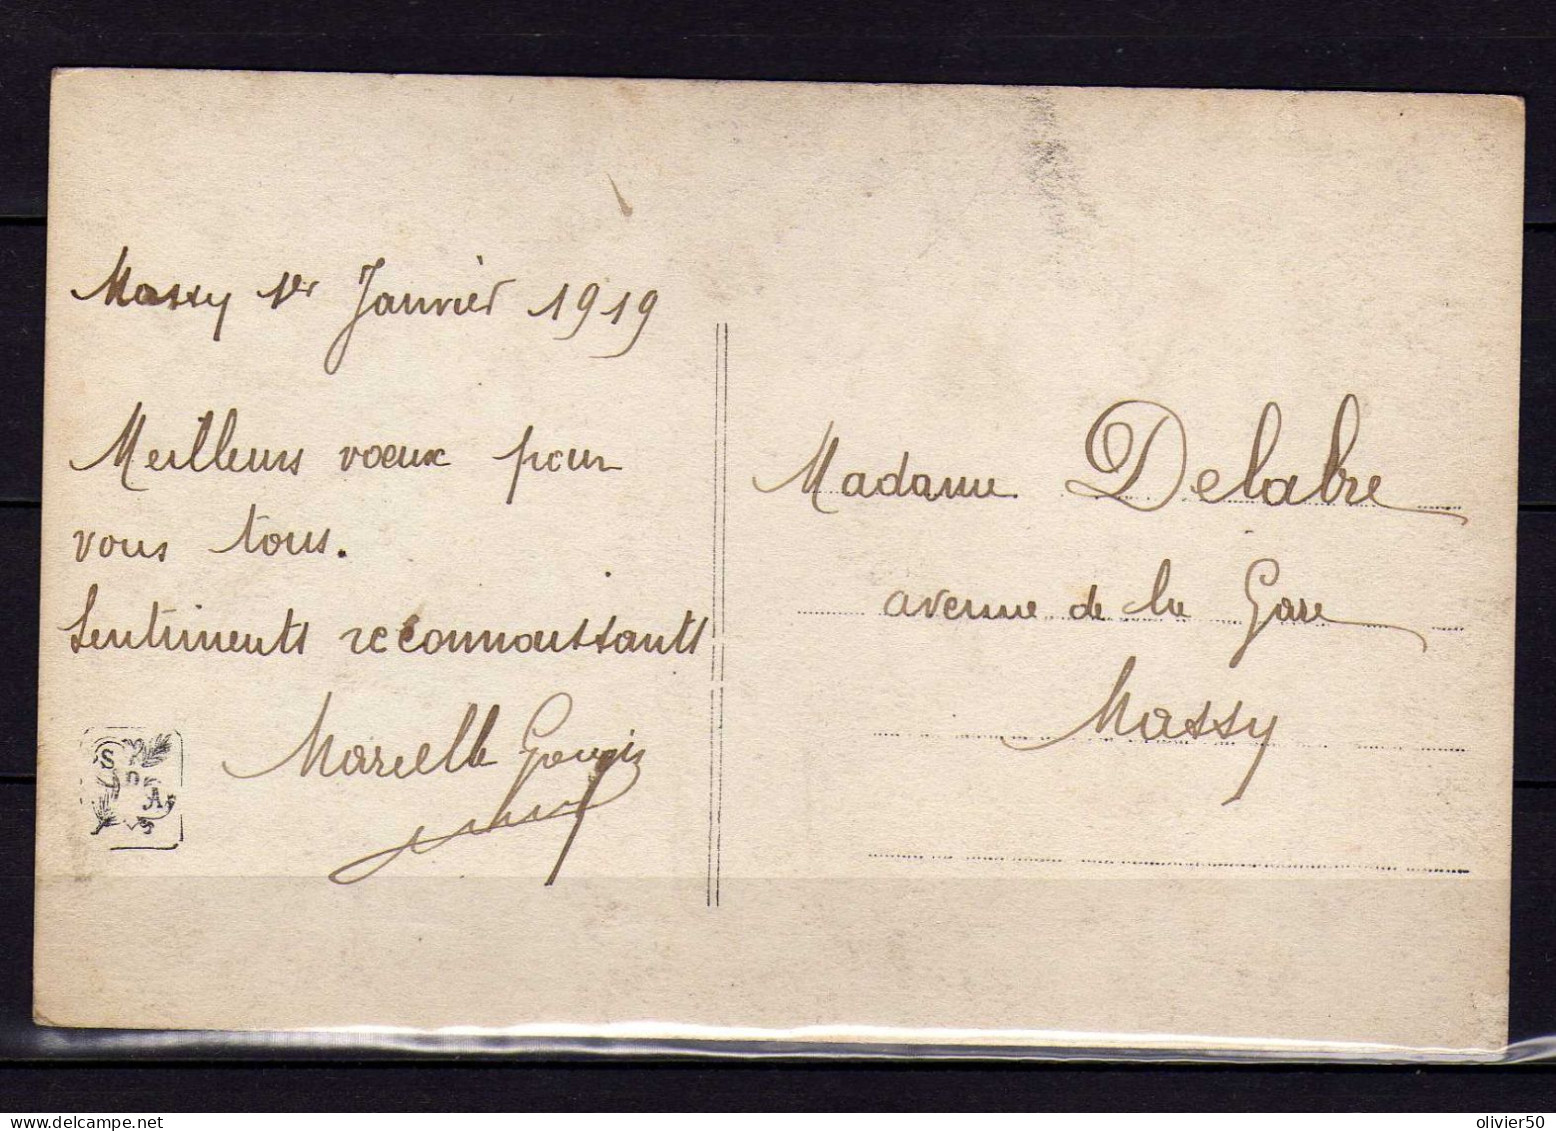 Massy 1er Janvier 1919
Meilleurs voeux pour
vous tous.
Sentiments reconnaissants
Marcelle
S
D
A
Madame Delabre
avenue de la Gare
Massy
olivier50